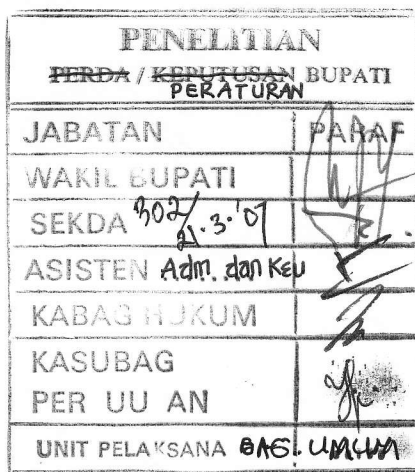 PENELITIAN
PERDA / KEPUTUSAN BUPATI
PERATURAN
JABATAN PARAF
WAKIL BUPATI
SEKDA 302/21.3.'07
ASISTEN Adm. dan Keu
KABAG HUKUM
KASUBAG
PER UU AN
UNIT PELAKSANA BAG. UMUM